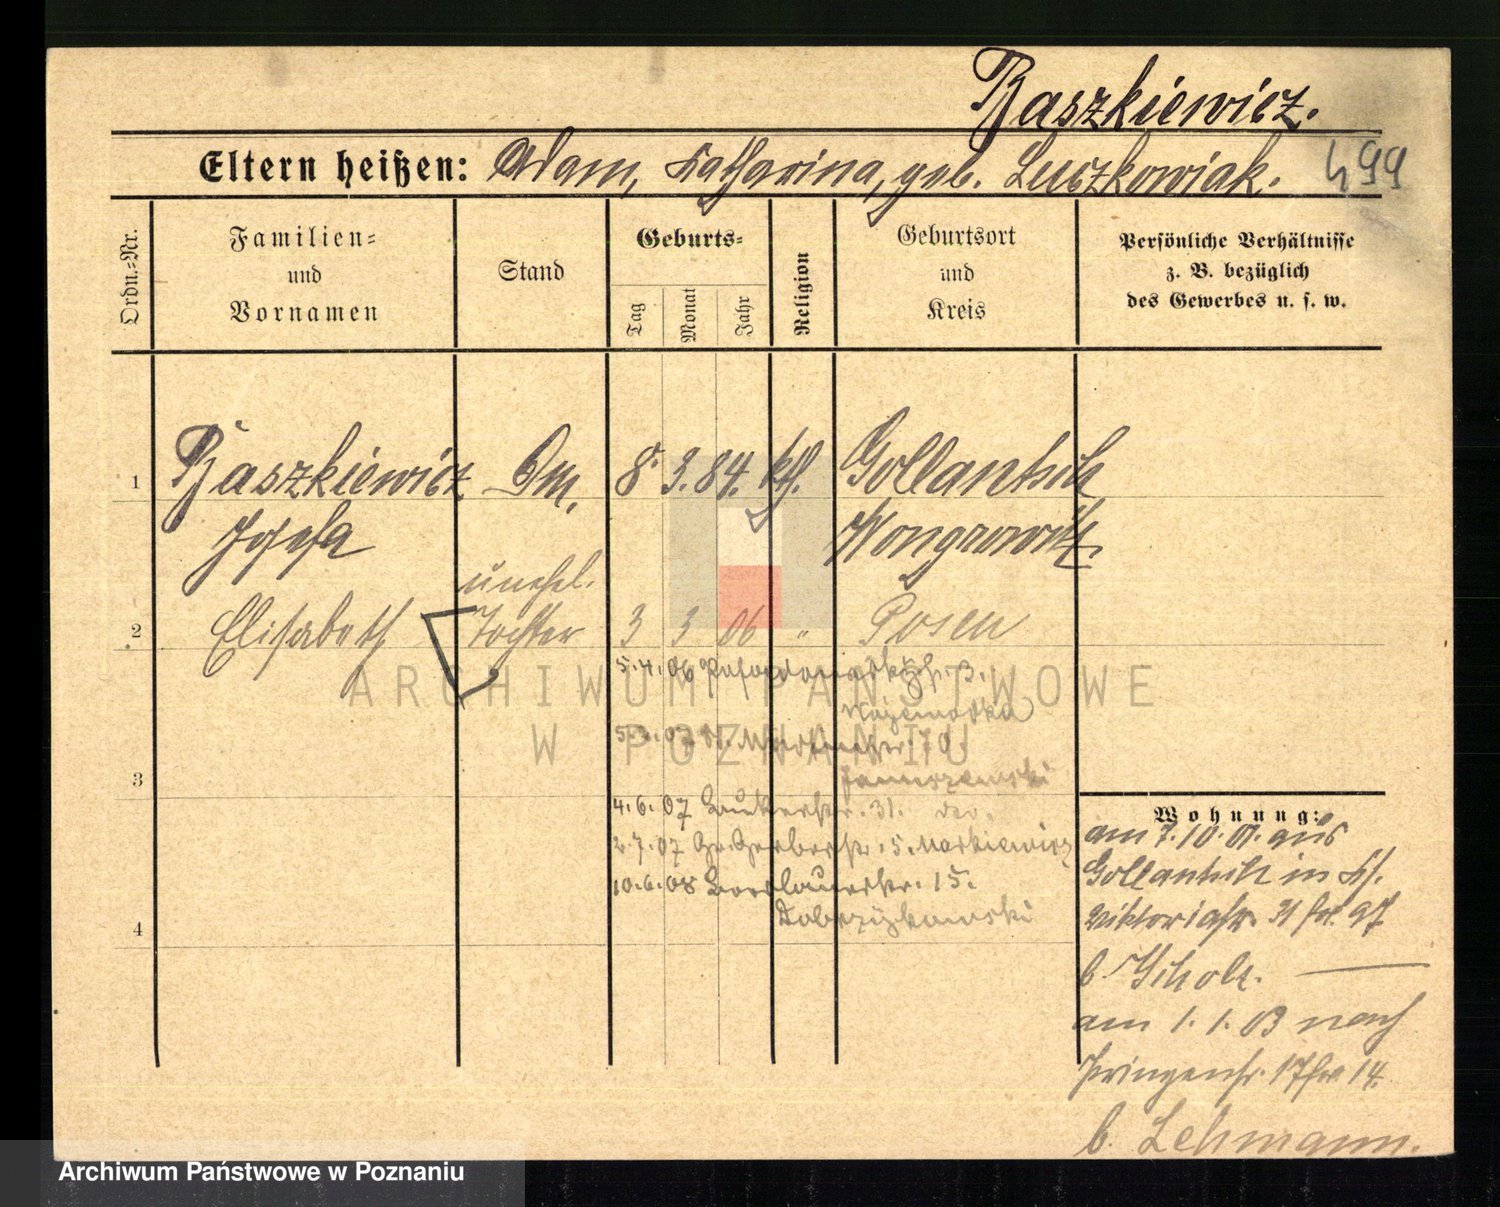 Baszkiewicz.
Eltern heißen: Adam, Katharina, geb. Luczkowiak. 499
Ordn.-Nr.
Familien- und Vornamen
Stand
Geburts-
Tag
Monat
Jahr
Religion
Geburtsort und Kreis
Persönliche Verhältnisse
z. B. bezüglich
des Gewerbes u. s. w.
1 Baszkiewicz Dm. 8. 3. 84. kth. Gollantsch
Josefa Wongrowitz
unehel.
2 Elisabeth Tochter 3 3 06 " Posen
5.4.06 3.
70.
3
Januszewski
4.6.07 31. do.
2.7.07 Gr. Gerberstr. 5. Markiewicz
10.6.08 Breslauerstr. 15.
4
Wohnung:
am 7.10.01. aus
Gollantsch in
Viktoriastr. 31 97
b. Scholz.
am 1. 1. 03 nach
17 14.
b. Lehmann.
ARCHIWUM PAŃSTWOWE
W POZNANIU
Archiwum Państwowe w Poznaniu